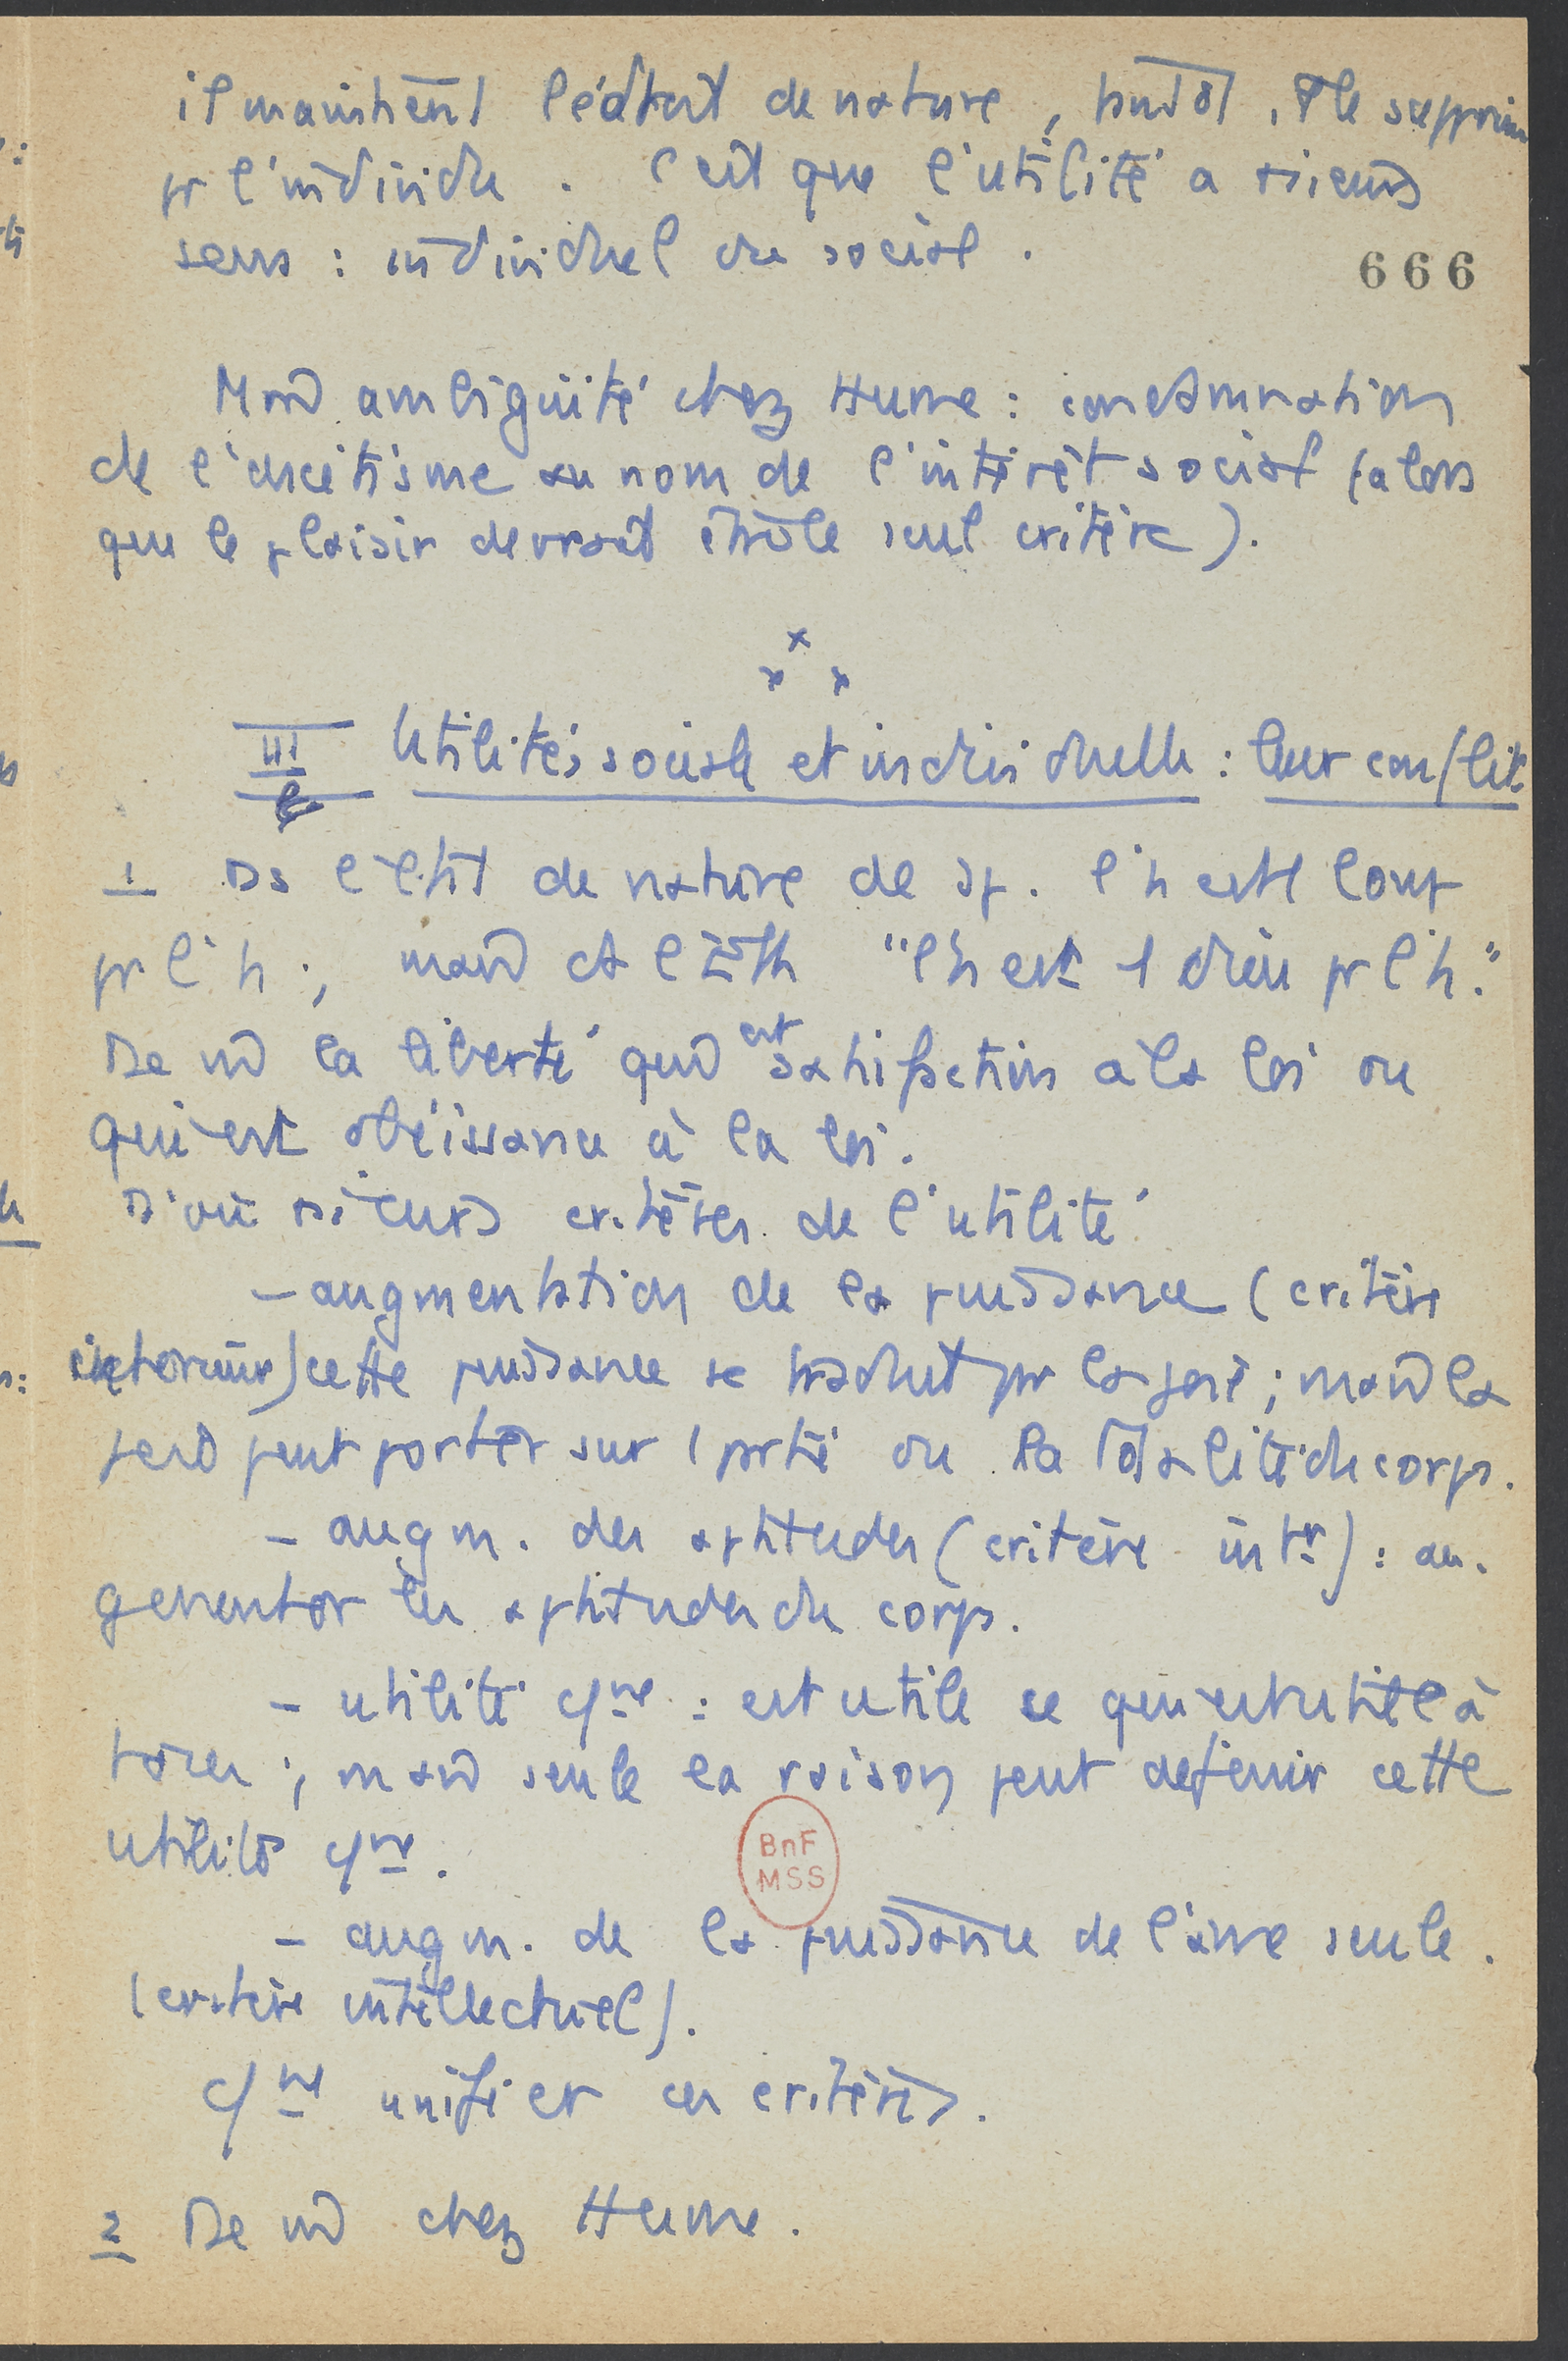 il maintient l'état de nature, tantôt il le supprime
pr l'individu. C'est que l'utilité a +sieurs
sens : individuel ou social.
666
Mm ambiguité chez Hume : condamnation
de l'ascétisme au nom de l'intérêt social (alors
que le plaisir devrait être le seul critère).
x
x x
III Utilités sociale et individuelle : leur conflit.
1 Ds l'état de nature de Sp. l'h est 1 loup
pr l'h ; mais "l'h est 1 dieu pr l'h."
De m la liberté qui est satisfaction à la loi ou
qui est obéissance à la loi.
D'où +sieurs critères de l'utilité
– augmentation de la puissance (critère
extérieur) cette puissance se traduit par la joie ; mais la
joie peut porter sur 1 partie ou la totalité du corps.
– augm. des aptitudes (critère intr) : au-
gmenter les aptitudes du corps.
– utilité cne : est utile ce qui est utile à
tous ; mais seule la raison peut définir cette
utilité cne.
BnF
MSS
– augm. de la puissance de l'âme seule.
(critère intellectuel).
unifier ces critères.
2 De m chez Hume.